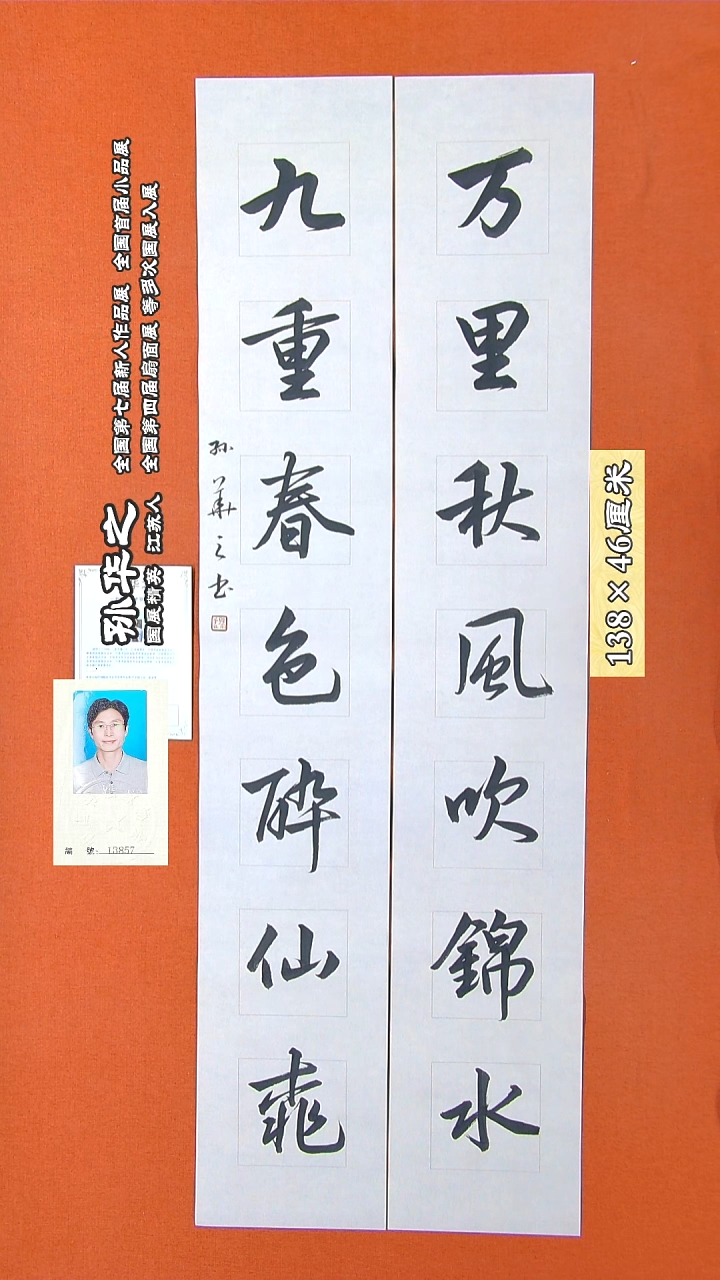 万里秋風吹錦水
九重春色酔仙桃
孙華之书
孙华之
国展精英 江苏人
全国第七届新人作品展 全国首届小品展
全国第四届扇面展 等多次国展入展
138×46厘米
編 號: 13857